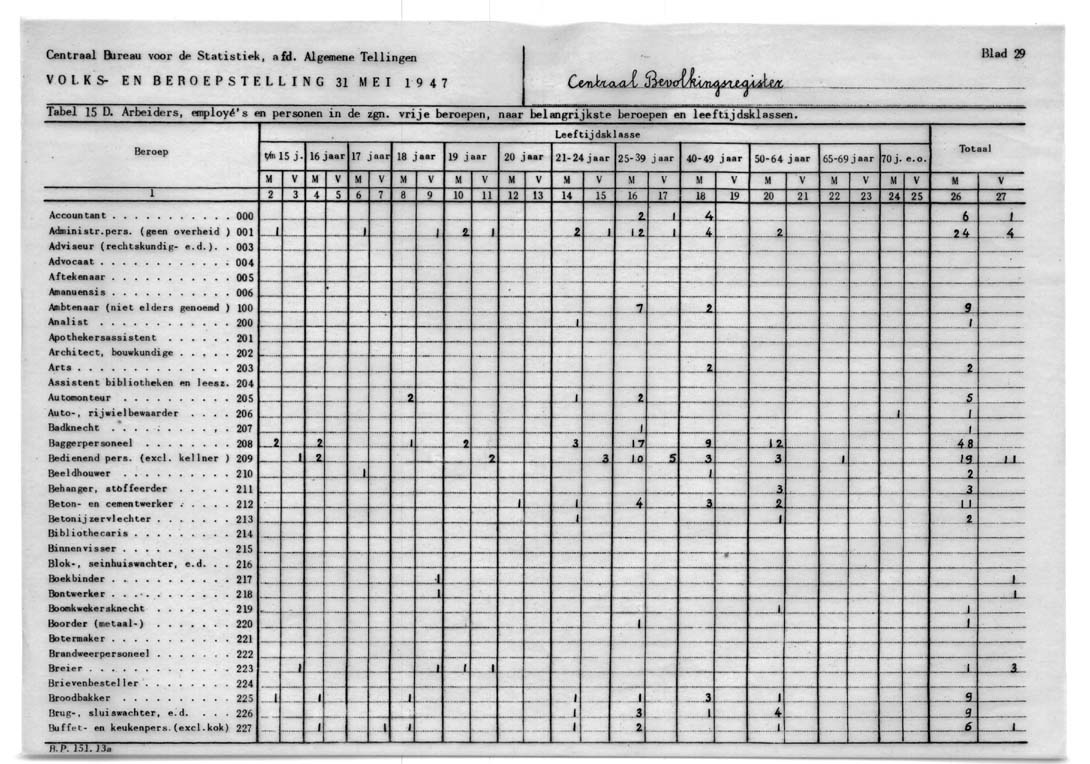 Centraal Bureau voor de Statistiek, afd. Algemene Tellingen
VOLKS- EN BEROEPSTELLING 31 MEI 1947
Centraal Bevolkingsregister
Blad 29
Tabel 15 D. Arbeiders, employé's en personen in de zgn. vrije beroepen, naar belangrijkste beroepen en leeftijdsklassen.
Beroep Leeftijdsklasse Totaal
t/m 15 j. 16 jaar 17 jaar 18 jaar 19 jaar 20 jaar 21-24 jaar 25-39 jaar 40-49 jaar 50-64 jaar 65-69 jaar 70 j. e.o.
M V M V M V M V M V M V M V M V M V M V M V M V M V
1 2 3 4 5 6 7 8 9 10 11 12 13 14 15 16 17 18 19 20 21 22 23 24 25 26 27
Accountant . . . . . . . . . . . 000 2 1 4 6 1
Administr.pers. (geen overheid ) 001 1 1 1 2 1 2 1 12 1 4 2 24 4
Adviseur (rechtskundig- e.d.). . 003
Advocaat . . . . . . . . . . . 004
Aftekenaar . . . . . . . . . . . 005
Amanuensis . . . . . . . . . . . 006
Ambtenaar (niet elders genoemd ) 100 7 2 9
Analist . . . . . . . . . . . . 200 1 1
Apothekersassistent . . . . . . 201
Architect, bouwkundige . . . . . 202
Arts . . . . . . . . . . . . . . 203 2 2
Assistent bibliotheken en leesz. 204
Automonteur . . . . . . . . . . 205 2 1 2 5
Auto-, rijwielbewaarder . . . . 206 1 1
Badknecht . . . . . . . . . . . 207 1 1
Baggerpersoneel . . . . . . . . 208 2 2 1 2 3 17 9 12 48
Bedienend pers. (excl. kellner ) 209 1 2 2 3 10 5 3 3 1 19 11
Beeldhouwer . . . . . . . . . . 210 1 1 2
Behanger, stoffeerder . . . . . 211 3 3
Beton- en cementwerker . . . . . 212 1 1 4 3 2 11
Betonijzervlechter . . . . . . . 213 1 1 2
Bibliothecaris . . . . . . . . . 214
Binnenvisser . . . . . . . . . . 215
Blok-, seinhuiswachter, e.d. . . 216
Boekbinder . . . . . . . . . . . 217 1 1
Bontwerker . . . . . . . . . . . 218 1 1
Boomkwekersknecht . . . . . . . 219 1 1
Boorder (metaal-) . . . . . . . 220 1 1
Botermaker . . . . . . . . . . . 221
Brandweerpersoneel . . . . . . . 222
Breier . . . . . . . . . . . . . 223 1 1 1 1 1 3
Brievenbesteller . . . . . . . . 224
Broodbakker . . . . . . . . . . 225 1 1 1 1 1 3 1 9
Brug-, sluiswachter, e.d. . . . 226 1 3 1 4 9
Buffet- en keukenpers.(excl.kok) 227 1 1 1 1 2 1 6 1
B.P. 151. 13a